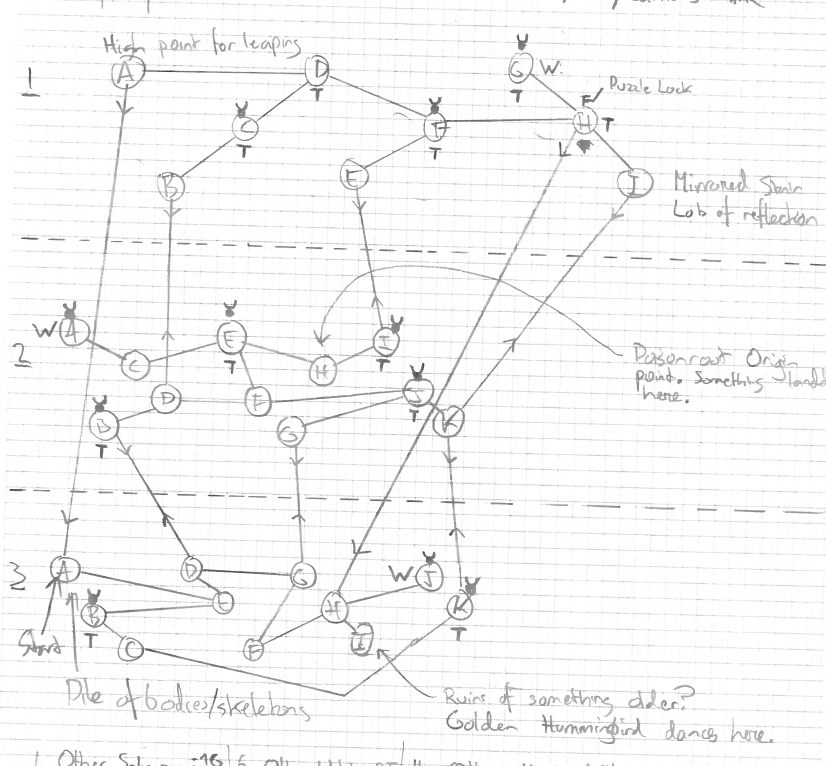 High point for leaping
1
A
D
T
G
W
T
Puzzle Lock
C
T
F
T
H
T
B
E
I
Mirrored
of reflection
W
A
2
C
E
T
H
I
T
Poisonroot Origin
point. Something
here.
D
F
J
T
B
T
G
K
3
A
D
G
W
J
B
T
H
K
T
Start
C
F
I
Pile of bodies/skeletons
Ruins of something older?
Golden Hummingbird dances here.
Other